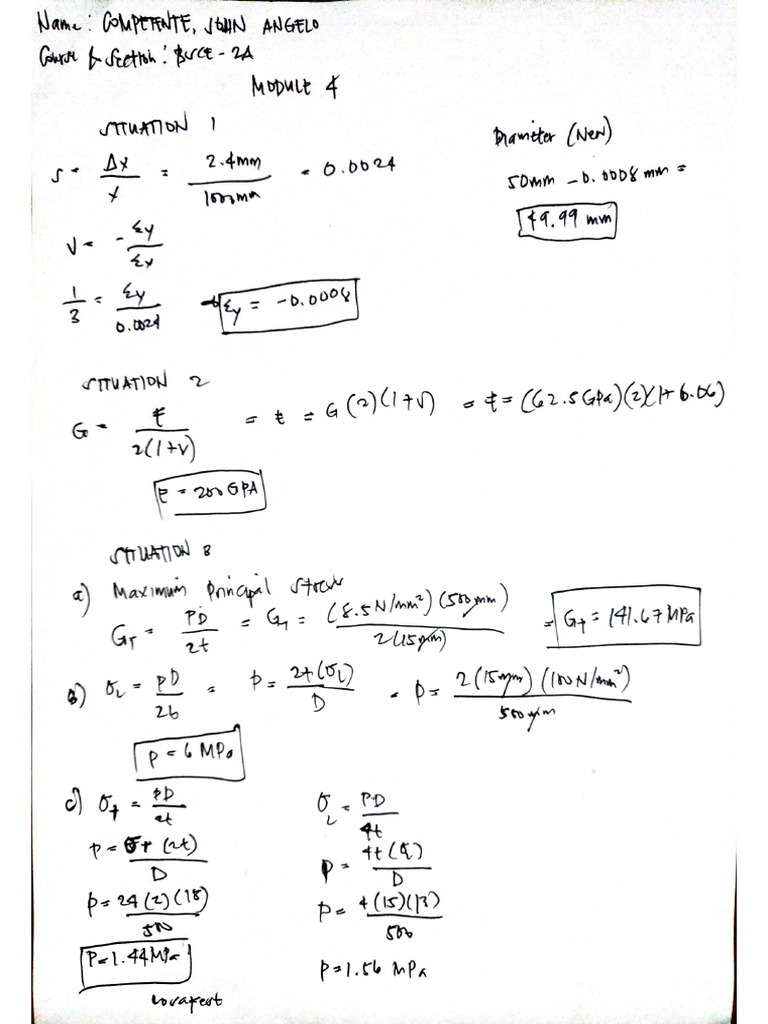 Name: COMPETENTE, JOHN ANGELO
Course & Section: BSCE - 2A
MODULE 4
SITUATION 1
S = Δx / x = 2.4mm / 1000mm = 0.0024
ν = - εy / εx
1/3 = εy / 0.0024 εy = -0.0008
Diameter (New)
50mm - 0.0008 mm =
49.99 mm
SITUATION 2
G = E / 2(1+ν) = E = G(2)(1+ν) = E = (62.5GPa)(2)(1+0.06)
E = 200 GPA
SITUATION 3
a) Maximum Principal Stress
σT = PD / 2t = σT = (8.5N/mm²)(500mm) / 2(15mm) = σT = 141.67 MPa
B) σL = PD / 2t = P = 2t(σL) / D = P = 2(15mm)(100N/mm²) / 500mm
P = 6 MPa
c) σT = PD / 2t
P = σT (2t) / D
P = 24(2)(18) / 500
P = 1.44MPa
σL = PD / 4t
P = 4t(σL) / D
P = 4(15)(13) / 500
P = 1.56 MPa